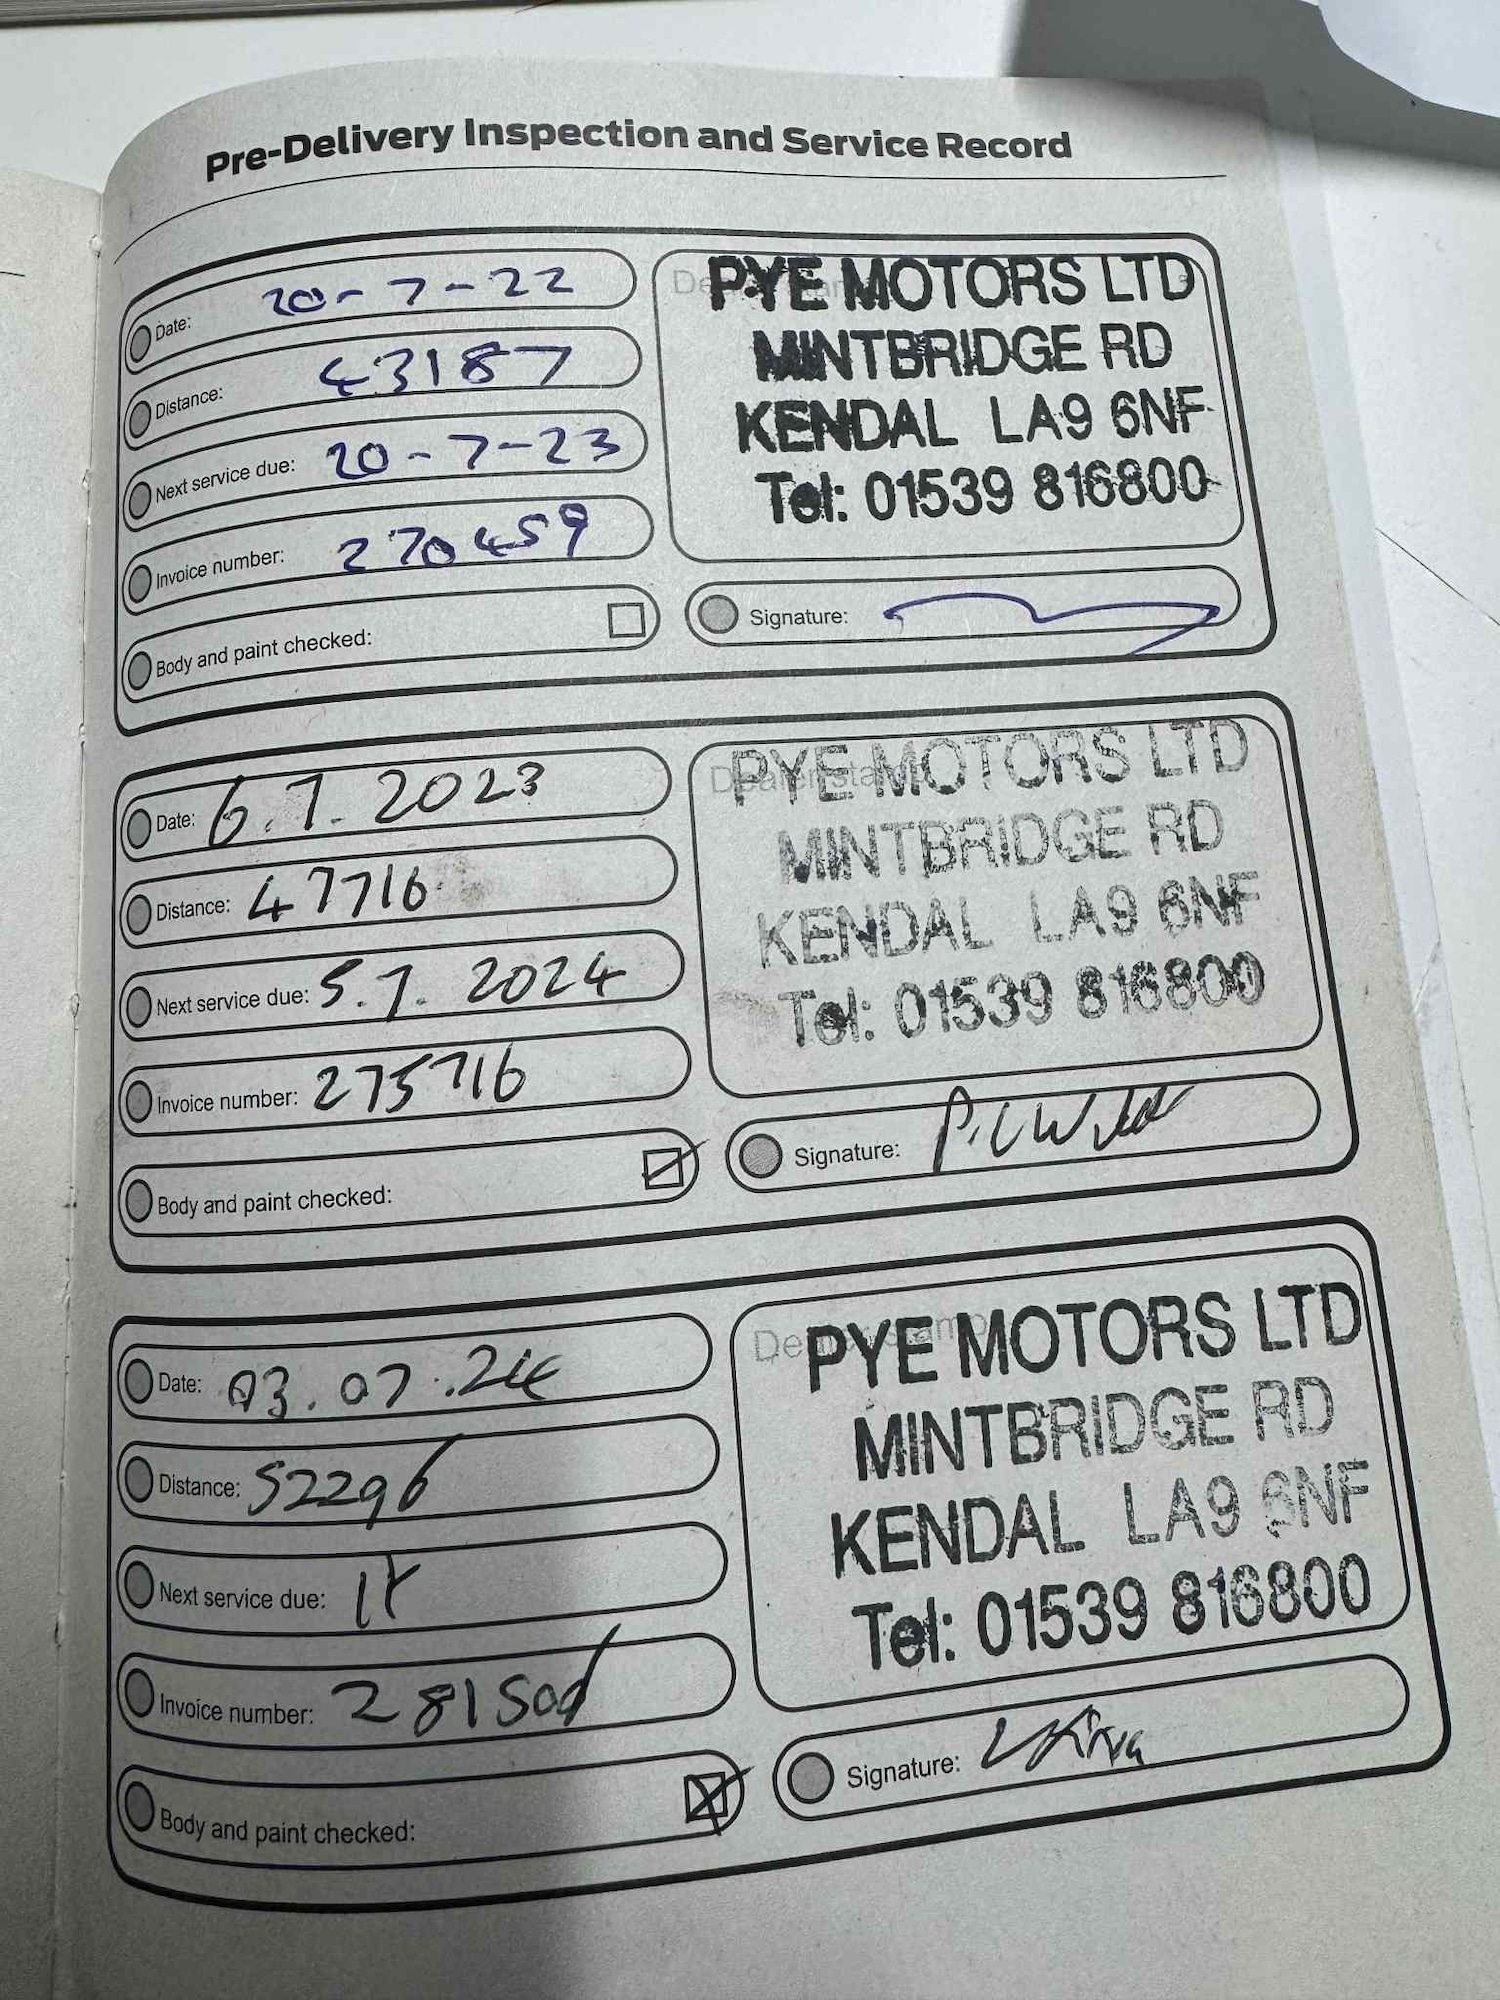 Pre-Delivery Inspection and Service Record
Date: 20-7-22
Distance: 43187
Next service due: 20-7-23
Invoice number: 270459
Body and paint checked:
PYE MOTORS LTD
MINTBRIDGE RD
KENDAL LA9 6NF
Tel: 01539 816800
Signature:
Date: 6.7.2023
Distance: 47716
Next service due: 5.7.2024
Invoice number: 275716
Body and paint checked:
Dealer stamp
PYE MOTORS LTD
MINTBRIDGE RD
KENDAL LA9 6NF
Tel: 01539 816800
Signature:
Date: 03.07.24
Distance: 52296
Next service due: 1Y
Invoice number:
Body and paint checked:
Dealer stamp
PYE MOTORS LTD
MINTBRIDGE RD
KENDAL LA9 6NF
Tel: 01539 816800
Signature: